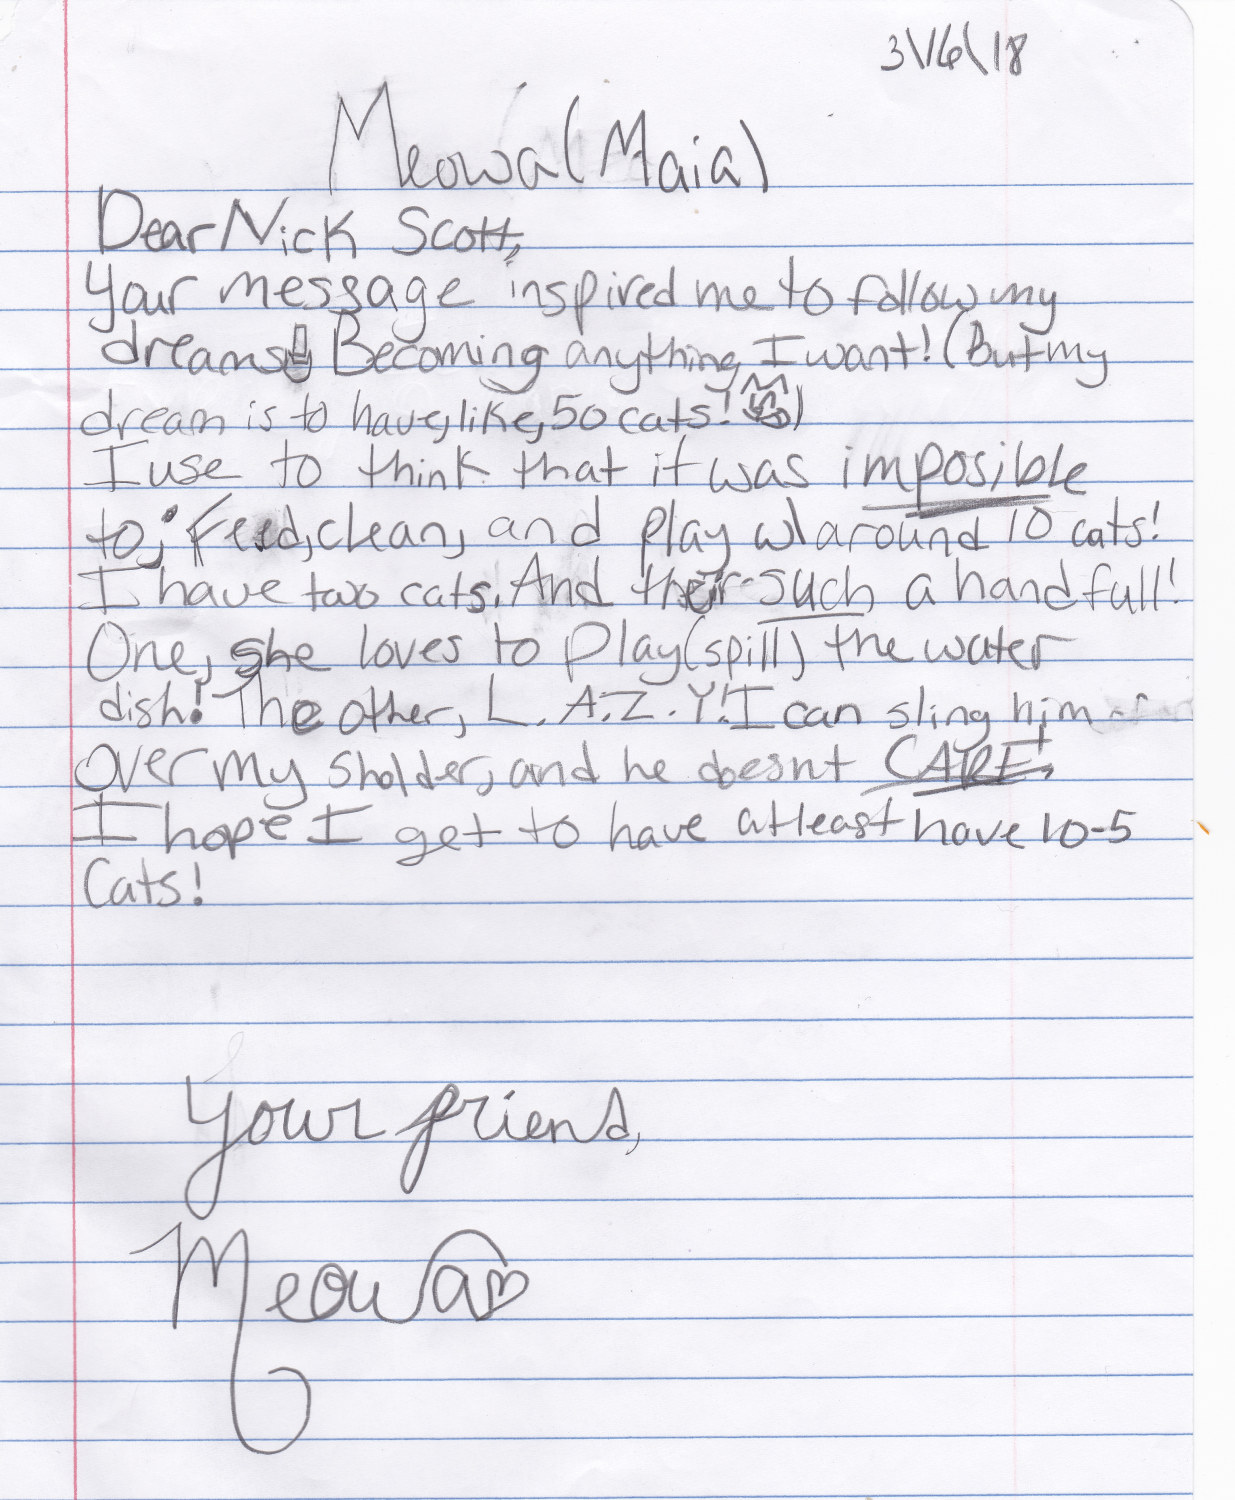 3\16\18
Meowa (Maia)
Dear Nick Scott,
Your message inspired me to follow my
dreams! Becoming anything I want! (But my
dream is to have, like, 50 cats! )
I use to think that it was imposible
to; Feed, clean, and play w\ around 10 cats!
I have two cats. And their such a handfull!
One, she loves to play (spill) the water
dish! The other, L.A.Z.Y! I can sling him
over my sholder, and he doesnt CARE!
I hope I get to have atleast have 10-5
Cats!
Your friend,
Meowa